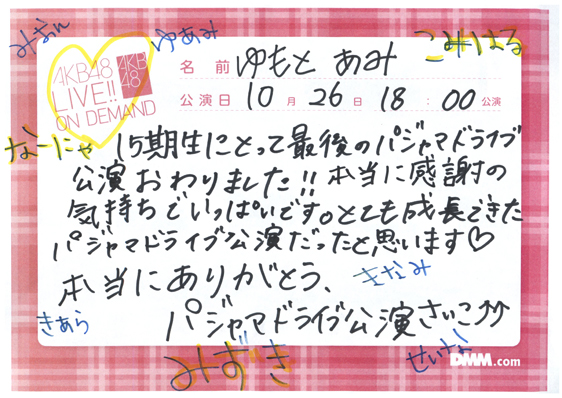 みおん
ゆあみ
こみはる
AKB48
LIVE!!
ON DEMAND
AKB
48
名前 ゆもと あみ
公演日 10月26日 18:00公演
なーにゃ
15期生にとって最後のパジャマドライブ
公演おわりました!!本当に感謝の
気持ちでいっぱいです。とても成長できた
パジャマドライブ公演だったと思います♡
本当にありがとう、
きなみ
きあら
パジャマドライブ公演さいこ↗↗
みずき
せいな
DMM.com